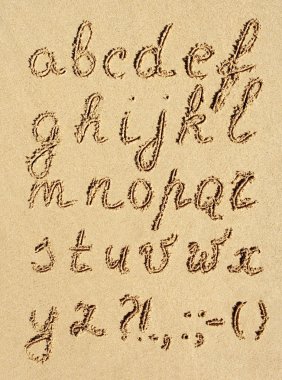 abcdef
ghijkl
mnopqr
stuvwx
yz?!.,:;-()